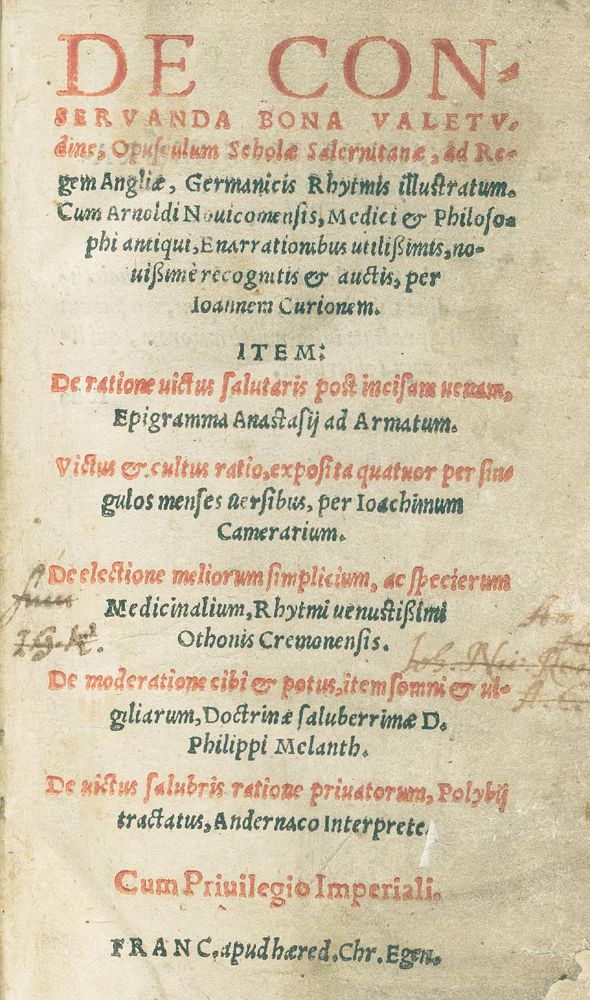 DE CON-
SERVANDA BONA VALETV-
dine, Opusculum Scholæ Salernitanæ, ad Re-
gem Angliæ, Germanicis Rhytmis illustratum.
Cum Arnoldi Nouicomensis, Medici & Philoso-
phi antiqui, Enarrationibus utilißimis, no-
uißimè recognitis & auctis, per
Ioannem Curionem.
ITEM:
De ratione uictus salutaris post incisam uenam,
Epigramma Anastasij ad Armatum.
Victus & cultus ratio, exposita quatuor per sin-
gulos menses uersibus, per Ioachimum
Camerarium.
De electione meliorum simplicium, ac specierum
Medicinalium, Rhytmi uenustißimi
Othonis Cremonensis.
De moderatione cibi & potus, item somni & ui-
giliarum, Doctrinæ saluberrimæ D.
Philippi Melanth.
De uictus salubris ratione priuatorum, Polybij
tractatus, Andernaco Interprete.
Cum Priuilegio Imperiali.
FRANC. apud hæred. Chr. Egen.